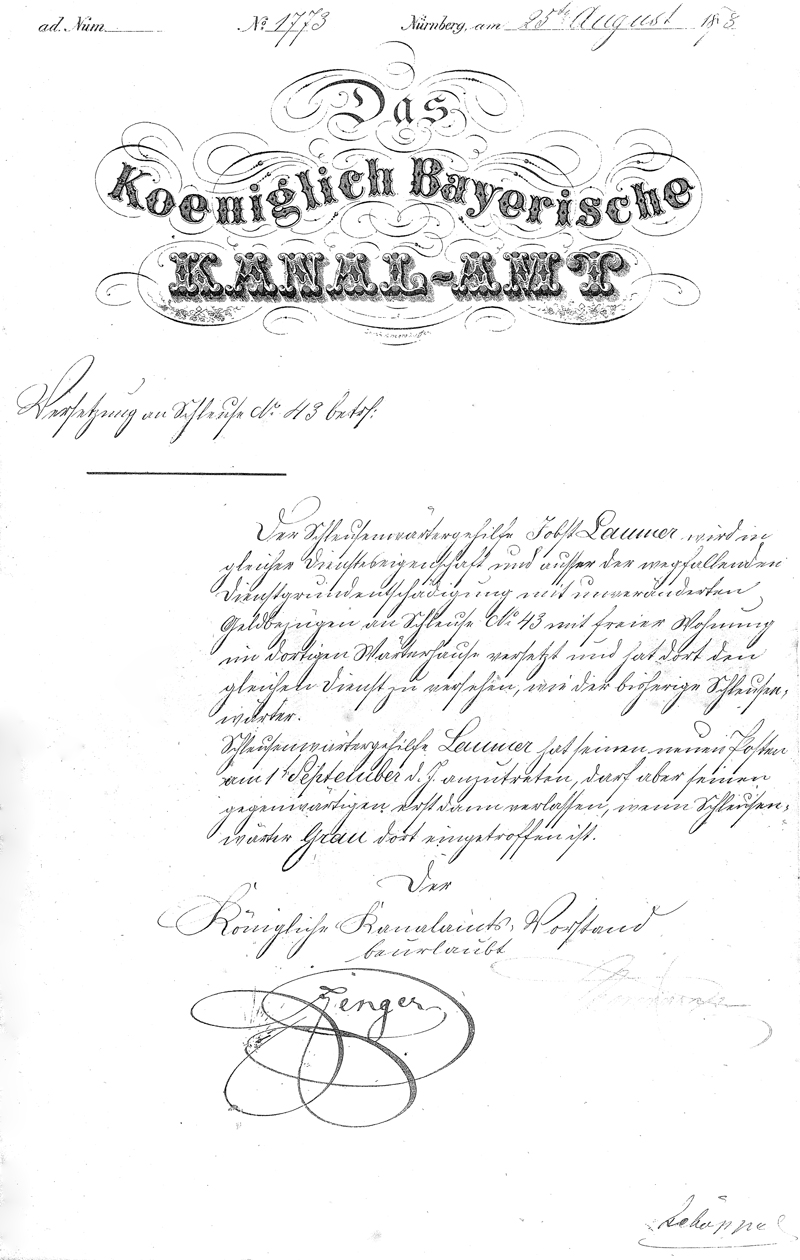 ad. Núm. No. 1773 Nürnberg, am 25ten August 1878
Das
Koeniglich Bayerische
KANAL-AMT
Versetzung an Schleuse No 43 betr:
Der Schleusenwärtergehilfe Jobst Laumer wird in
gleicher Dienstseigenschaft und ausser der wegfallenden
Dienstgrundentschädigung mit unveränderten
Geldbezügen an Schleuse No 43 mit freier Wohnung
im dortigen Wärterhause versetzt und hat dort den
gleichen Dienst zu versehen, wie der bisherige Schleusen-
wärter.
Schleusenwärtergehilfe Laumer hat seinen neuen Posten
am 1t September d. J. anzutreten, darf aber seinen
gegenwärtigen erst dann verlassen, wenn Schleusen-
wärter Grau dort eingetroffen ist.
Der
Königliche Kanalamts-Vorstand
beurlaubt
Zenger